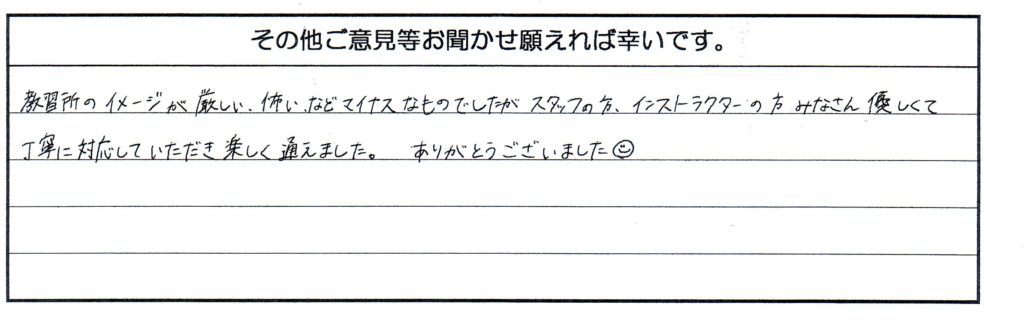 その他ご意見等お聞かせ願えれば幸いです。
教習所のイメージが厳しい、怖い、などマイナスなものでしたがスタッフの方、インストラクターの方みなさん優しくて
丁寧に対応していただき楽しく通えました。 ありがとうございました☺